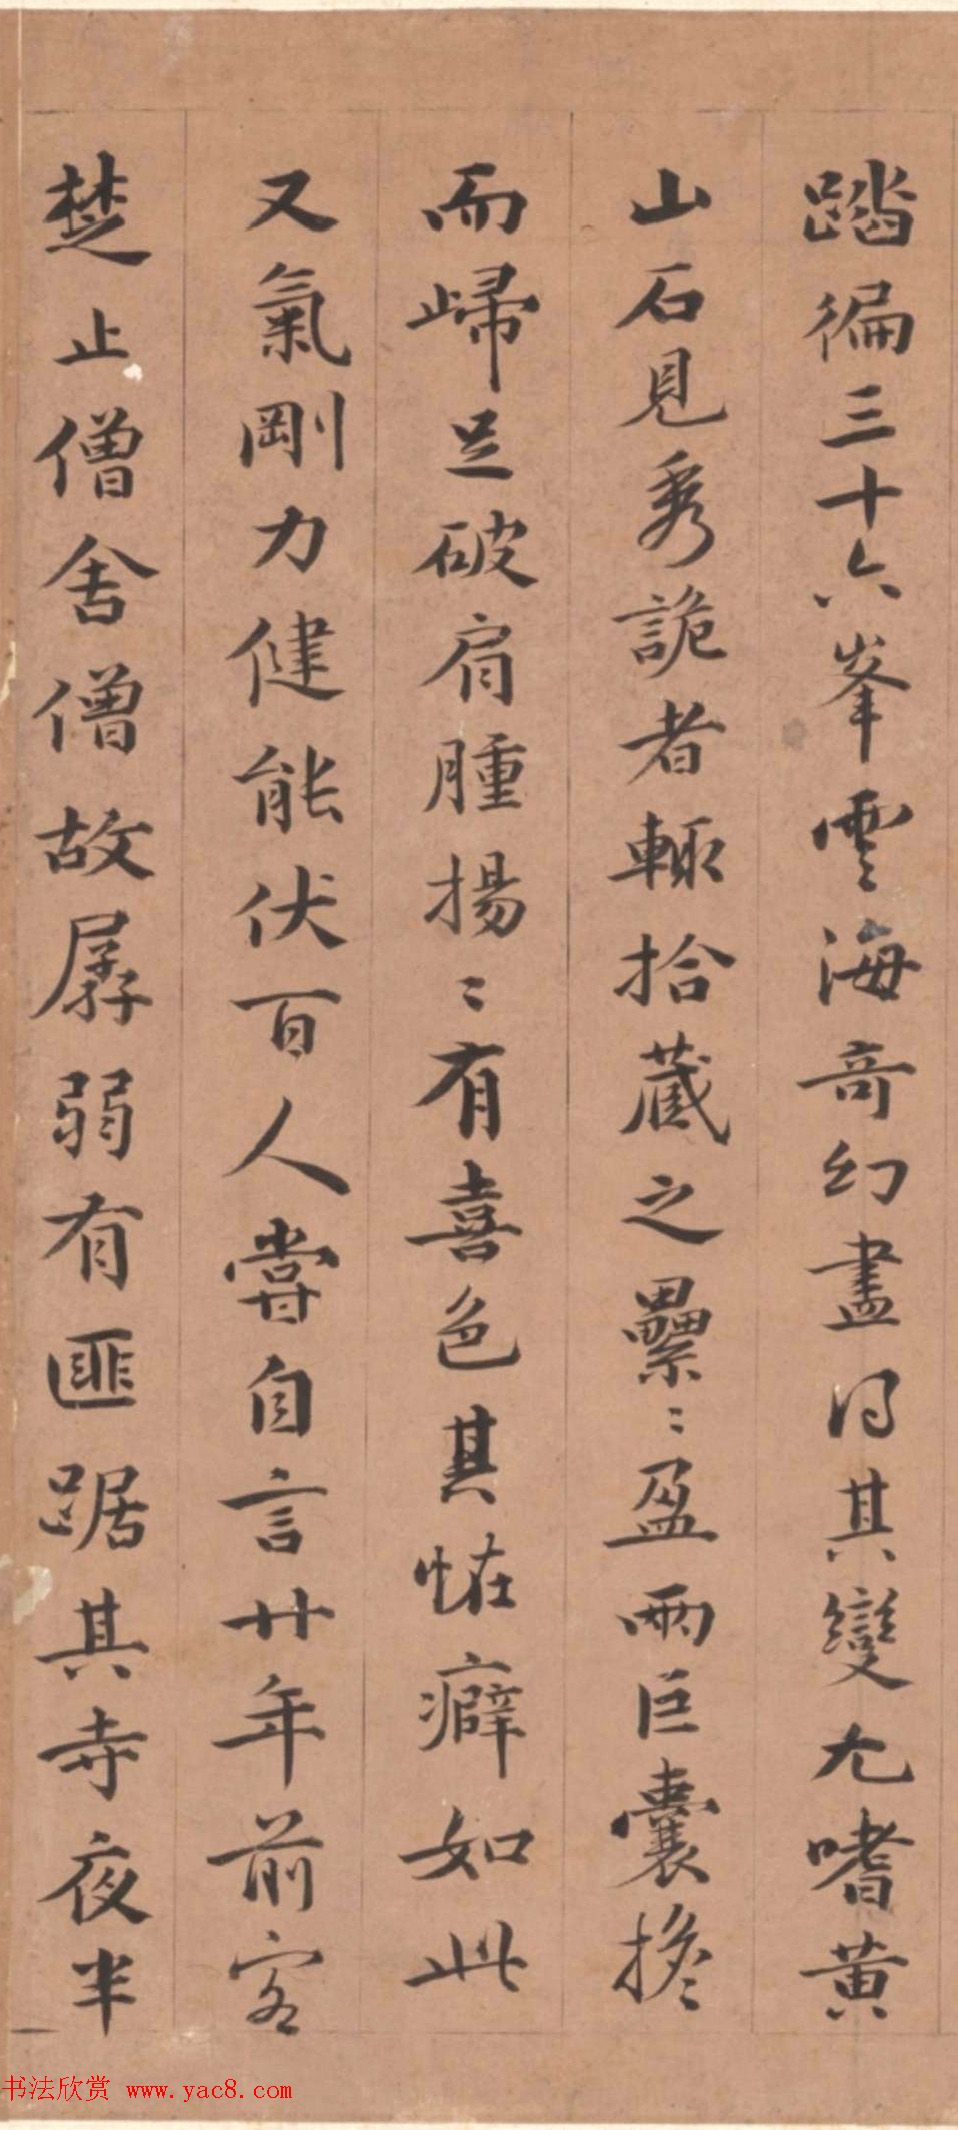 踏徧三十六峯雲海奇幻盡得其變尤嗜黃
山石見秀詭者輒拾藏之纍〻盈兩巨囊擔
而歸足破肩腫揚〻有喜色其怪癖如此
又氣剛力健能伏百人嘗自言廿年前客
楚止僧舍僧故孱弱有匪踞其寺夜半
书法欣赏 www.yac8.com